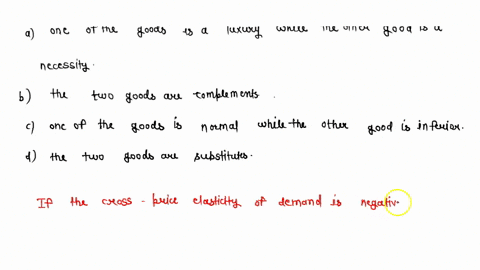 a) one of the goods is a luxury while the other good is a
necessity.
b) the two goods are complements.
c) one of the goods is normal while the other good is inferior.
d) the two goods are substitutes.
If the cross-price elasticity of demand is negativ